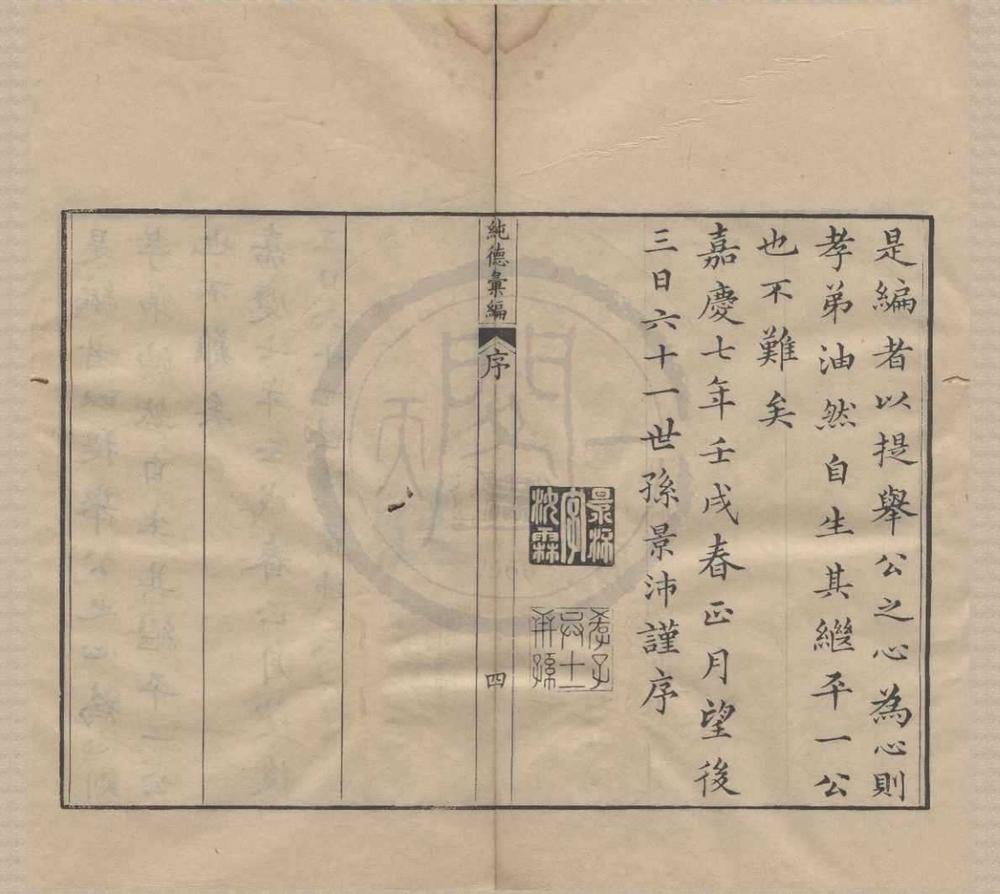 是編者以提舉公之心為心則
孝弟油然自生其繼平一公
也不難矣
嘉慶七年壬戌春正月望後
三日六十一世孫景沛謹序
景沛
字
沈霖
孝子
六十一
世孫
純德彙編
序
四